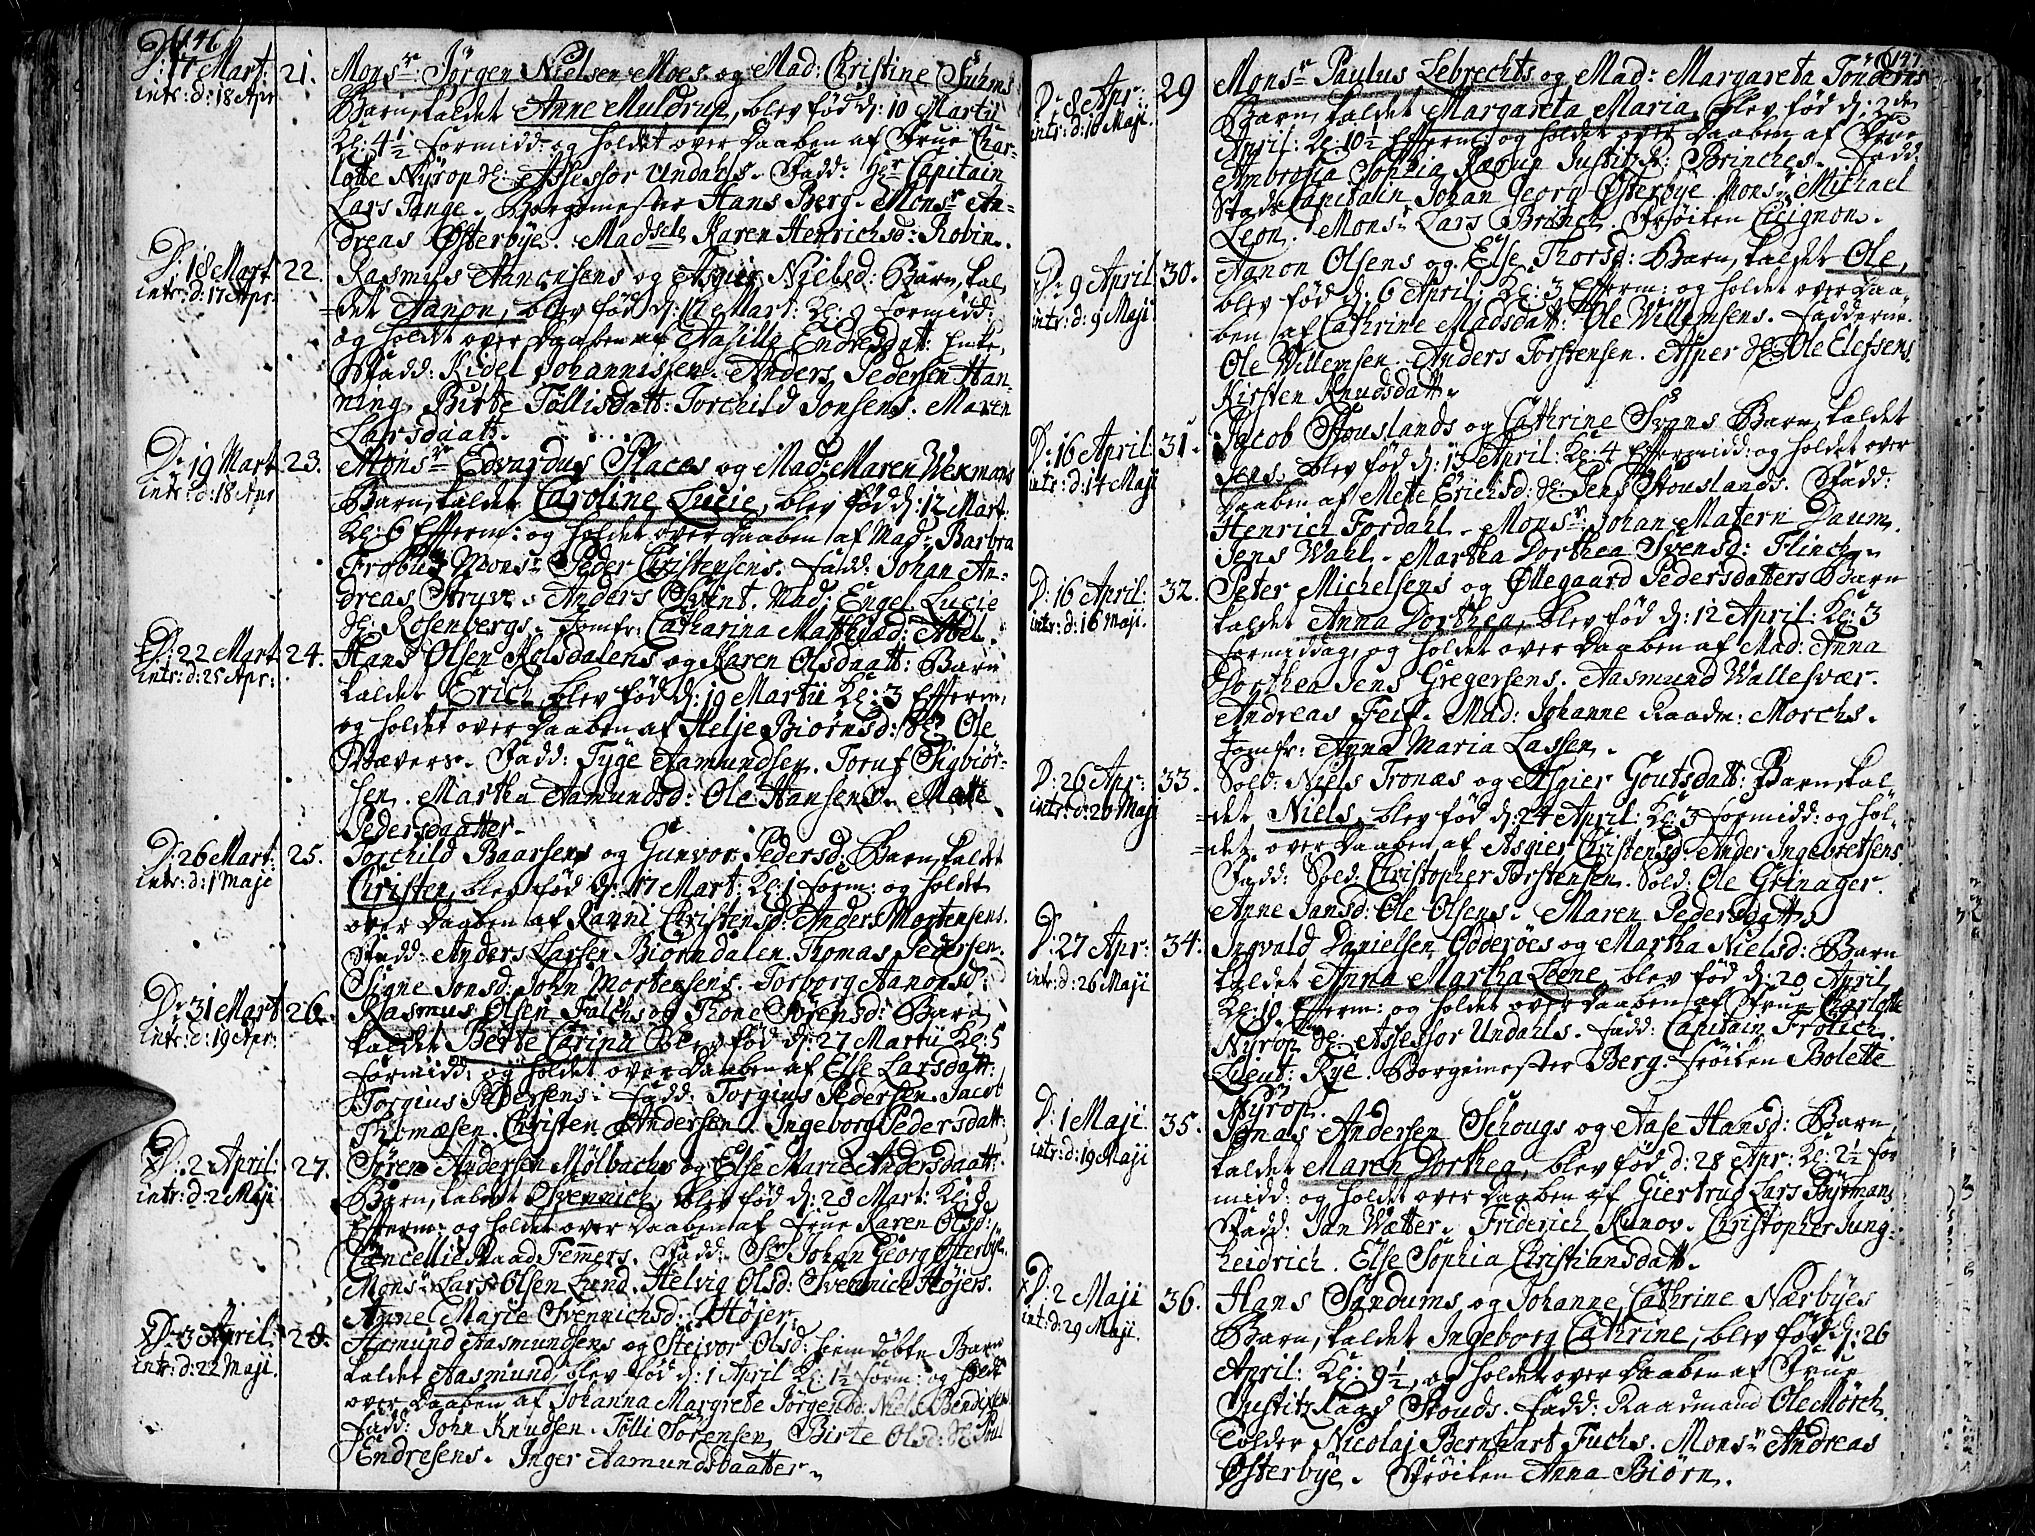 146
D: 17 Mart: 21.
intr: d: 18 Apr
Monsr: Jörgen Nielsen Moes og Mad: Christine Suhms
Barn, kaldet Anne Muldrup, blev föd d: 10 Martii
Kl: 4 1/2 formidd: og holdet over Daaben af Frue Char-
lotte Nÿrop Hr: Assessor Undahls. Fadd: Hr Capitain
Lars Tange. Borgemester Hans Berg. Monsr An-
dreas Østerbÿe. Madselle Karen Henrichsd: Robin.
D: 18 Mart 22.
intr: d: 17 Apr:
Rasmus Aanonsens og Asgier Nielsd: Barn, kal
=det Aanon, blev föd d: 17 Mart: Kl: 9 formidd:
og holdt over Daaben af Aasille Endresdatt: Enke,
Fadd: Kidel Johannissen. Anders Pedersen Han-
ning. Birte Tollisdatt: Torchild Jonsens. Maren
Larsdaatt.
D: 19 Mart 23.
intr: d: 18 Apr
Monsr Edvardus Places og Mad: Maren Wexmans
Barn, kaldet Caroline Lucie, blev föd d: 12 Mart:
Kl: 6 Efferm: og holdet over Daaben af Mad: Barbra
Frobus Monsr Peder Christensens. Fadd: Johan An-
dreas Struve. Anders Qvint. Mad: Engel Lucie
Hr: Rosenbergs. Jomfr: Catharina Matthiad: Abel.
D: 22 Mart 24.
intr: d: 25 Apr:
Hans Olsen Rolsdalens og Karen Olsdaatt: Barn
kaldet Erich, blev föd d: 19 Martii Kl: 3 Efferm.
og holdet over Daaben af Helje Biornsd: Ole
Bævers. Fadd: Tyge Aamundsen. Toruf Sigbiör-
sen. Martha Aamundsd: Ole Hansens. Mette
Pedersdaatter.
D: 26 Mart: 25.
intr: d: 1 Maji
Torchild Baarsens og Gunvor Pedersd: Barn, kaldet
Christen, blev föd d: 17 Mart: Kl: 1 form: og holdet
over Daaben af Ranni Christensd: Anders Mortensens.
Fadd: Anders Larsen Biorndalen. Thomas Pedersen.
Signe Jonsd: John Mortensens. Torborg Aanonsd:
D: 31 Mart 26.
intr: d: 19 Apr:
Rasmus Olsen Falchs og Thone Sörensd: Barn
kaldet Berte Carina blev föd d: 27 Martii Kl: 5
formidd: og holdet over Daaben af Else Larsdatt:
Torgius Pedersens. Fadd: Torgius Pedersen. Jacob
Tromæsen. Christen Andersen. Ingeborg Pedersdatt.
D: 2 April: 27.
intr: d: 2 Maji
Sören Andersen Mölbachs og Else Marie Andersdaatt:
Barn, kaldet Svennich, blev föd d: 28 Mart: Kl: 9
Efferm: og holdet over Daaben af Frue Karen Olsd:
CancellieRaad Femmers. Fadd: Sr Johan Georg Østerbÿe.
Monsr Lars Olsen Lund. Helvig Olsd: Svennich Höjers.
Anne Marie Svennichsd: Höjer.
D: 3 April: 28.
intr: d: 22 Maji.
Aamund Aasmundsens og Steivor Olsd: hiemdöbte Barn
kaldet Aasmund, blev föd d: 1 April Kl: 1 1/2 form: og holdt
over Daaben af Johanna Margrete Jörgensd: Niels Bendixen
Fadd: John Knudsen. Tölli Sörensen. Birte Olsd: Poul
Endresens. Inger Aamundsdaatter.
147.
D: 8 Apr: 29
intr: d: 10 Maji.
Monsr Paulus Lebrechts og Mad: Margareta Tonders
Barn, kaldet Margareta Maria, blev föd d: 2den
April: Kl: 10 1/2 Efferm: og holdet over Daaben af Frue
Ambrosia Sophia Justitzr: Brinches. Fadd:
Stads Capitain Johan Georg Østerbÿe Monsr Michael
Leon. Monsr Lars Brinch. Fröiken Cicignon.
D: 9 April: 30.
intr: d: 9 Maji.
Aanon Olsens og Else Thorsd: Barn, kaldet Ole,
blev föd d: 6 April: Kl: 3 Efferm: og holdet over Daa-
ben af Cathrine Madsdatt: Ole Willemsens. Fadderne.
Ole Willemsen. Anders Torstensen. Asper Ole Elefsens.
Kirsten Knudsdatt.
D: 16 April: 31.
intr: d: 14 Maji
Jacob Stouslands og Cathrine Svans Barn, kaldet
Jens, blev föd d: 13 April: Kl: 4 Effermidd: og holdet over
Daaben af Mette Erichsd: Jens Stouslands. Fadd:
Henrich Fordahl. Monsr Johan Matern Daum.
Jens Wahl. Martha Dorthea Svensd: Flinch.
D: 16 April: 32.
intr: d: 16 Maji.
Peter Michelsens og Øllegaard Pedersdatters Barn
kaldet Anna Dorthea, blev föd d: 12 April: Kl: 3
formiddag, og holdet over Daaben af Mad: Anna
Dorthea Jens Gregersens. Aasmund Wallesvær.
Andreas Feif. Mad: Johanne Raadm: Morchs.
Jomfr: Anna Maria Lassen.
D: 26 Apr: 33.
intr: d: 26 Maji
Sold: Niels Tronæs og Asgier Goutsdatt: Barn, kal-
=det Niels, blev föd d: 24 April: Kl: 3 formidd: og hol-
=det over Daaben af Asgier Christensd: Ander Ingebretsens
Fadd: Sold: Christopher Torstensen. Sold: Ole Grinager.
Anne Jansd: Ole Olsens. Maren Pedersdatt.
D: 27 Apr: 34.
intr: d: 26 Maji
Ingvald Danielsen Odderöes og Martha Nielsd: Barn
kaldet Anna Martha Leene, blev föd d: 20 April
Kl: 10 Efferm: og holdet over Daaben af Frue Charlotte
Nÿrop Hr: Assessor Undahls. Fadd: Capitain Frölich.
Lieut: Rÿe. Borgemester Berg. Fröiken Bolette
Nÿrop.
D: 1 Maji 35.
intr: d: 19 Maji
Jonas Andersen Schougs og Aase Hansd: Barn,
kaldet Maren Dorthea, blev föd d: 28 Apr: Kl: 2 1/2 for
midd: og holdet over Daaben af Giertrud Lars Bÿrmans
Fadd: Jan Watter. Friderich Kunov. Christopher Jung-
heidrich. Else Sophia Christiansdatt.
D: 2 Maji 36.
int: d: 29 Maji.
Hans Sandums og Johanne Cathrine Nærbÿes
Barn, kaldet Ingeborg Cathrine, blev föd d: 26
April: Kl: 9 1/2, og holdet over Daaben af Frue
JustitzRaad Stouds. Fadd: Raadmand Ole Mörch.
Tolder Nicolaj Bernhart Fuchs. Monsr Andreas
Østerbÿe. Fröiken Anna Biörn.